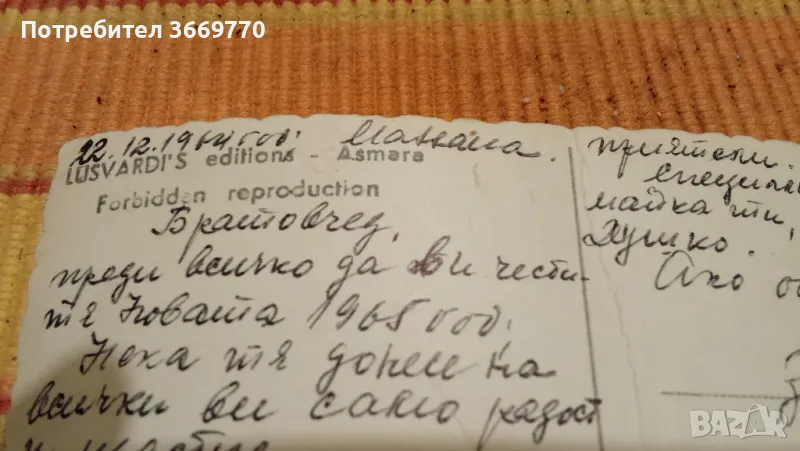 Потребител 3669770
22.12.1964 год.
LUSVARDI'S editions - Asmara
Forbidden reproduction
Братовчед,
преди всичко да ви чести-
тя Новата 1965 год.
Нека тя донесе на
всички ви само радост
и щастие
приятели.
майка ти,
Душко.
Ако
BAZAR